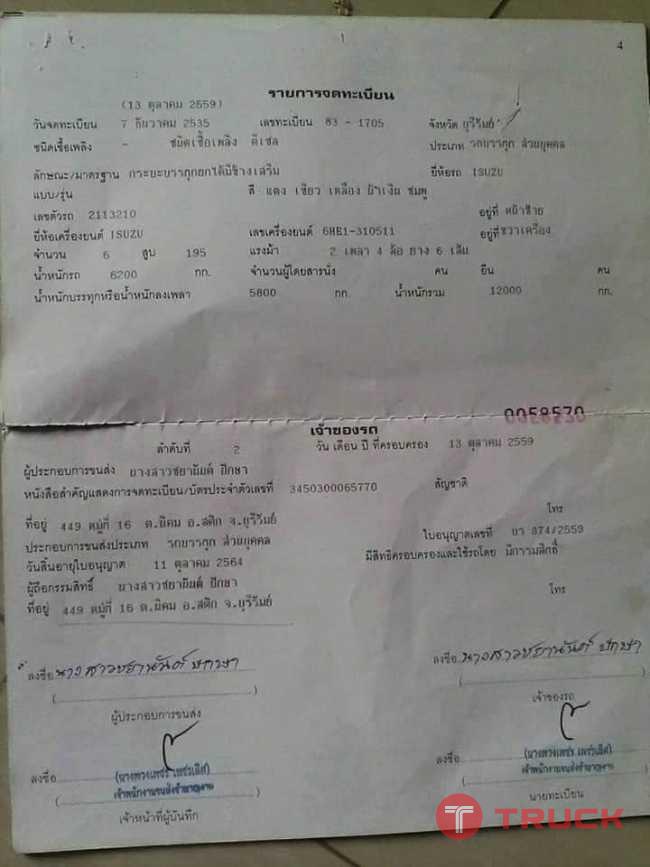 4
รายการจดทะเบียน
(13 ตุลาคม 2559)
วันจดทะเบียน 7 ธันวาคม 2535 เลขทะเบียน 83 - 1705 จังหวัด บุรีรัมย์
ชนิดเชื้อเพลิง - ชนิดเชื้อเพลิง ดีเซล ประเภท รถบรรทุก ส่วนบุคคล
ลักษณะ/มาตรฐาน กระบะบรรทุกยกได้มีข้างเสริม ยี่ห้อรถ ISUZU
แบบ/รุ่น สี แดง เขียว เหลือง น้ำเงิน ชมพู
เลขตัวรถ 2113210 อยู่ที่ หน้าซ้าย
ยี่ห้อเครื่องยนต์ ISUZU เลขเครื่องยนต์ 6HE1-310511 อยู่ที่ ขวาเครื่อง
จำนวน 6 สูบ 195 แรงม้า 2 เพลา 4 ล้อ ยาง 6 เส้น
น้ำหนักรถ 6200 กก. จำนวนผู้โดยสารนั่ง คน ยืน คน
น้ำหนักบรรทุกหรือน้ำหนักลงเพลา 5800 กก. น้ำหนักรวม 12000 กก.
0058570
เจ้าของรถ
ลำดับที่ 2 วัน เดือน ปี ที่ครอบครอง 13 ตุลาคม 2559
ผู้ประกอบการขนส่ง นางสาวชยานันต์ ปักษา
หนังสือสำคัญแสดงการจดทะเบียน/บัตรประจำตัวเลขที่ 3450300065770 สัญชาติ
โทร
ที่อยู่ 449 หมู่ที่ 16 ต.นิคม อ.สตึก จ.บุรีรัมย์ ใบอนุญาตเลขที่ บร 874/2559
ประกอบการขนส่งประเภท รถบรรทุก ส่วนบุคคล มีสิทธิครอบครองและใช้รถโดย มีกรรมสิทธิ์
วันสิ้นอายุใบอนุญาต 11 ตุลาคม 2564
ผู้ถือกรรมสิทธิ์ นางสาวชยานันต์ ปักษา โทร
ที่อยู่ 449 หมู่ที่ 16 ต.นิคม อ.สตึก จ.บุรีรัมย์
ลงชื่อ นางสาวชยานันต์ ปักษา ลงชื่อ นางสาวชยานันต์ ปักษา
ผู้ประกอบการขนส่ง เจ้าของรถ
ลงชื่อ ลงชื่อ
เจ้าพนักงานขนส่งชำนาญงาน เจ้าพนักงานขนส่งชำนาญงาน
เจ้าหน้าที่ผู้บันทึก นายทะเบียน
TRUCK